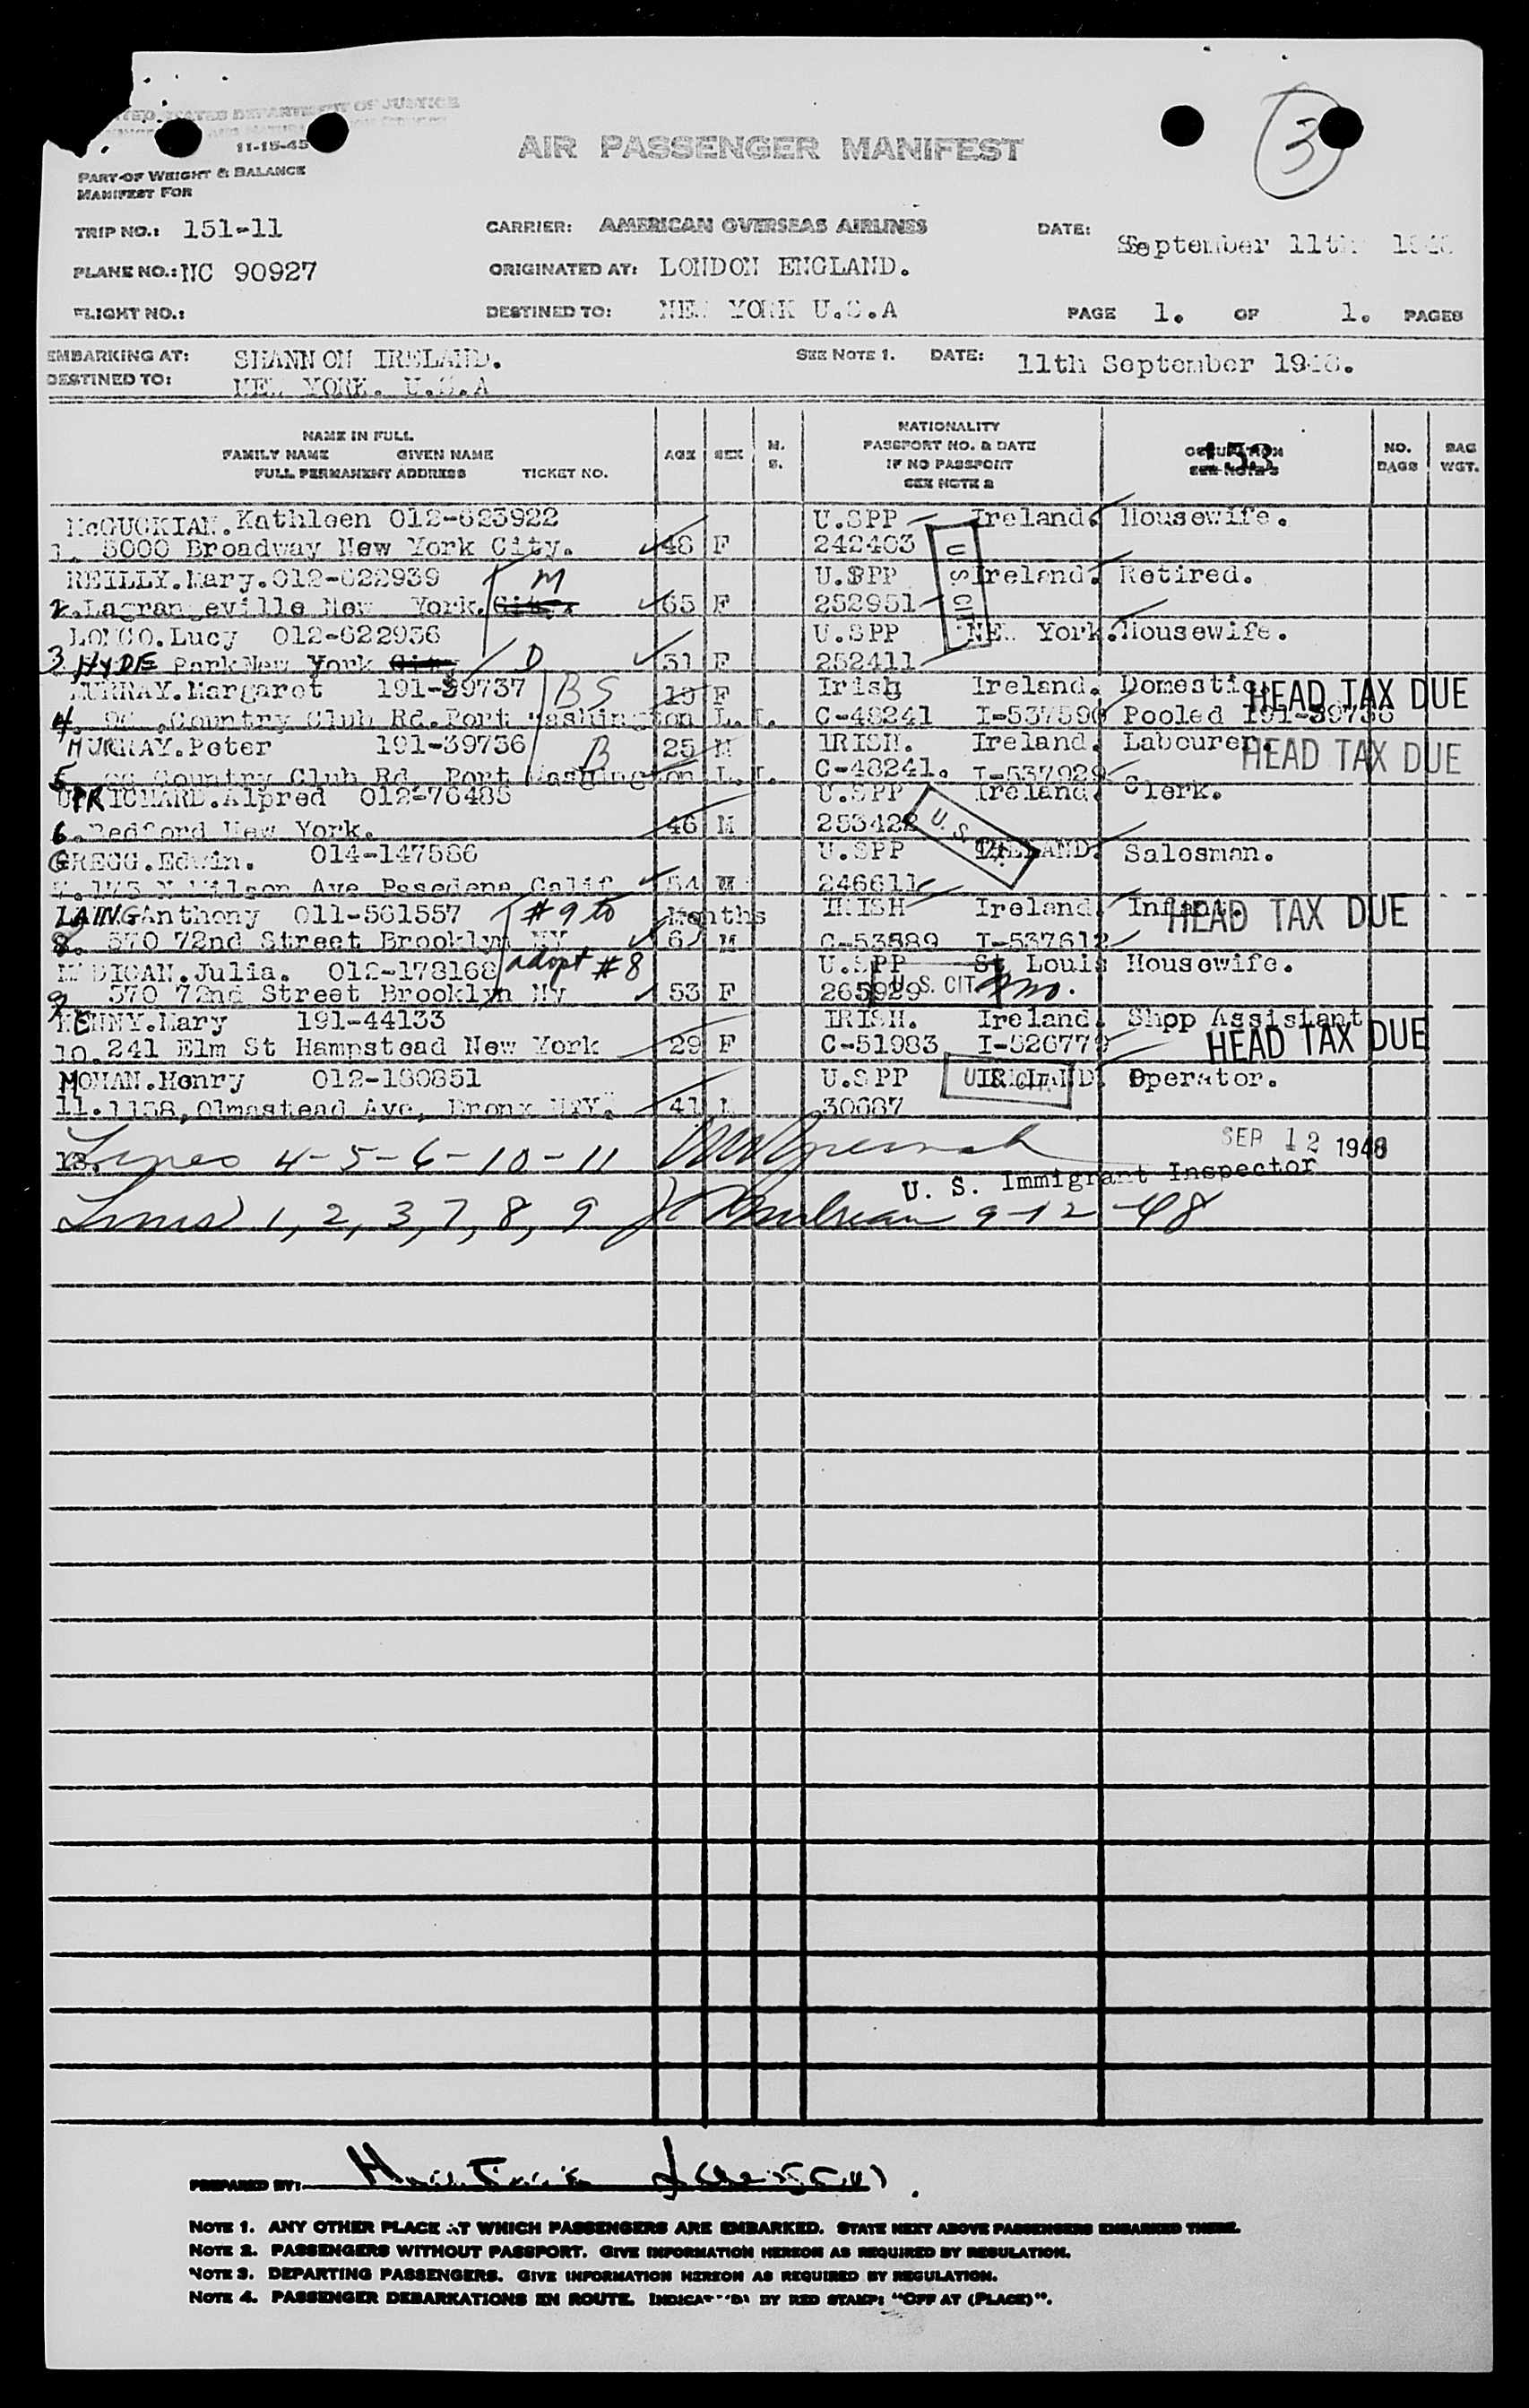 UNITED STATES DEPARTMENT OF JUSTICE
11-15-45
AIR PASSENGER MANIFEST
3
PART OF WEIGHT & BALANCE
MANIFEST FOR
TRIP NO.: 151-11 CARRIER: AMERICAN OVERSEAS AIRLINES DATE: September 11th 1948
PLANE NO.: NC 90927 ORIGINATED AT: LONDON ENGLAND.
FLIGHT NO.: DESTINED TO: NEW YORK U.S.A PAGE 1. OF 1. PAGES
EMBARKING AT: SHANNON IRELAND. SEE NOTE 1. DATE: 11th September 1948.
DESTINED TO: NEW YORK. U.S.A
NAME IN FULL
FAMILY NAME GIVEN NAME
FULL PERMANENT ADDRESS TICKET NO.
AGE SEX M. S.
NATIONALITY
PASSPORT NO. & DATE
IF NO PASSPORT
SEE NOTE 2
OCCUPATION
SEE NOTE 3
153
NO. BAGS
BAG WGT.
McGUCKIAN. Kathleen 012-623922 U.SPP Ireland. Housewife.
1. 5000 Broadway New York City. 48 F 242403
REILLY. Mary. 012-622939 M U.SPP Ireland. Retired.
2. Lagrangeville New York. City. 65 F 252951 U S CIT.
LONGO. Lucy 012-622936 U.SPP NEW York. Housewife.
3 HYDE Park New York City D 31 F 252411
MURRAY. Margaret 191-39737 BS 19 F Irish Ireland. Domestic. HEAD TAX DUE
4. Country Club Rd. Port Washington L. I. C-48241 I-537590 Pooled 191-39736
MURRAY. Peter 191-39736 B 25 M IRISH. Ireland. Labourer. HEAD TAX DUE
5 Country Club Rd Port Washington L. I. C-48241. I-537929
UPRICHARD. Alfred 012-76485 U.SPP Ireland. Clerk.
6. Bedford New York. 46 M 253422 U. S. CIT.
GREGG. Edwin. 014-147586 U.SPP IRELAND. Salesman.
7. N Wilson Ave Pasedena Calif 54 M 246611
LAING Anthony 011-561557 #9 to Months IRISH Ireland. Infant. HEAD TAX DUE
8. 570 72nd Street Brooklyn NY 6 M C-53889 I-537612
MADIGAN. Julia. 012-178168 adopt #8 U.SPP St Louis Housewife.
9 570 72nd Street Brooklyn Ny 53 F 265929 U.S. CIT. Mo.
KENNY. Mary 191-44133 IRISH. Ireland. Shop Assistant
10. 241 Elm St Hampstead New York 29 F C-51983 I-526779 HEAD TAX DUE
MOHAN. Henry 012-180851 U.SPP IRELAND. U.S. CIT. Operator.
11. 1158, Olmastead Ave, Bronx NY. 41 M 30687
Lines 4-5-6-10-11 SEP 12 1948
U. S. Immigrant Inspector
Lines 1, 2, 3, 7, 8, 9 9-12-48
PREPARED BY:
NOTE 1. ANY OTHER PLACE AT WHICH PASSENGERS ARE EMBARKED. STATE NEXT ABOVE PASSENGERS EMBARKED THERE.
NOTE 2. PASSENGERS WITHOUT PASSPORT. GIVE INFORMATION HEREON AS REQUIRED BY REGULATION.
NOTE 3. DEPARTING PASSENGERS. GIVE INFORMATION HEREON AS REQUIRED BY REGULATION.
NOTE 4. PASSENGER DEBARKATIONS EN ROUTE. INDICATED BY RED STAMP: "OFF AT (PLACE)".